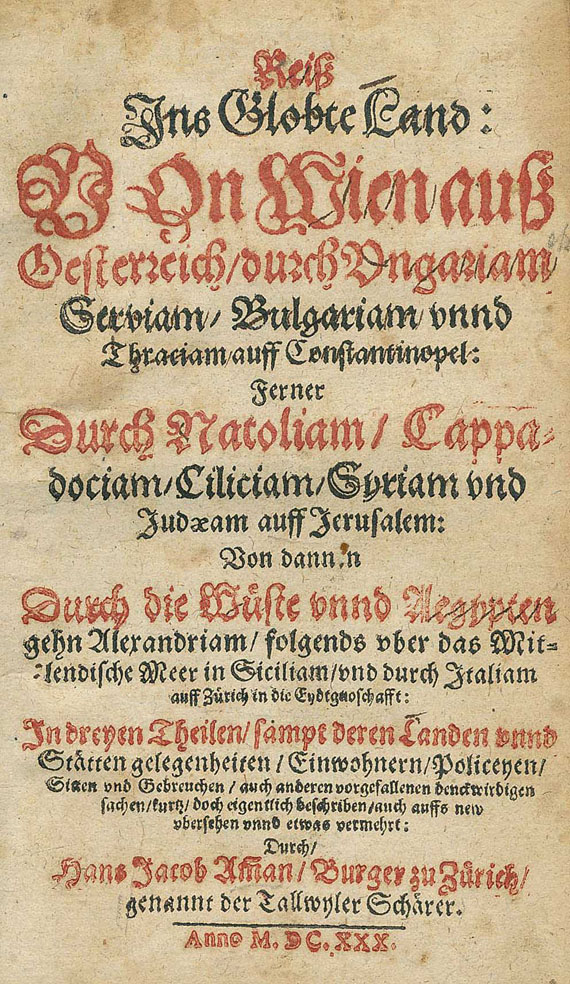 Reiß
Ins Globte Land:
VOn Wien auß
Oesterreich/durch Vngariam/
Serviam/ Bulgariam vnnd
Thraciam/auff Constantinopel:
Ferner
Durch Natoliam/ Cappa-
dociam/Ciliciam/Syriam vnd
Judæam auff Jerusalem:
Von dannen
Durch die Wüste vnnd Aegypten
gehn Alexandriam/ folgends vber das Mit-
lendische Meer in Siciliam/vnd durch Italiam
auff Zürich in die Eydtgnoschafft:
In dreyen Theilen/ sampt deren Landen vnnd
Stätten gelegenheiten / Einwohnern/Policeyen/
Sitten vnd Gebreuchen / auch anderen vorgefallenen denckwirdigen
sachen/kurtz/ doch eigentlich beschriben/auch auffs new
vbersehen vnnd etwas vermehrt:
Durch/
Hans Jacob Am̃an/ Burger zu Zürich/
genannt der Tallwyler Schärer.
Anno M. DC. XXX.